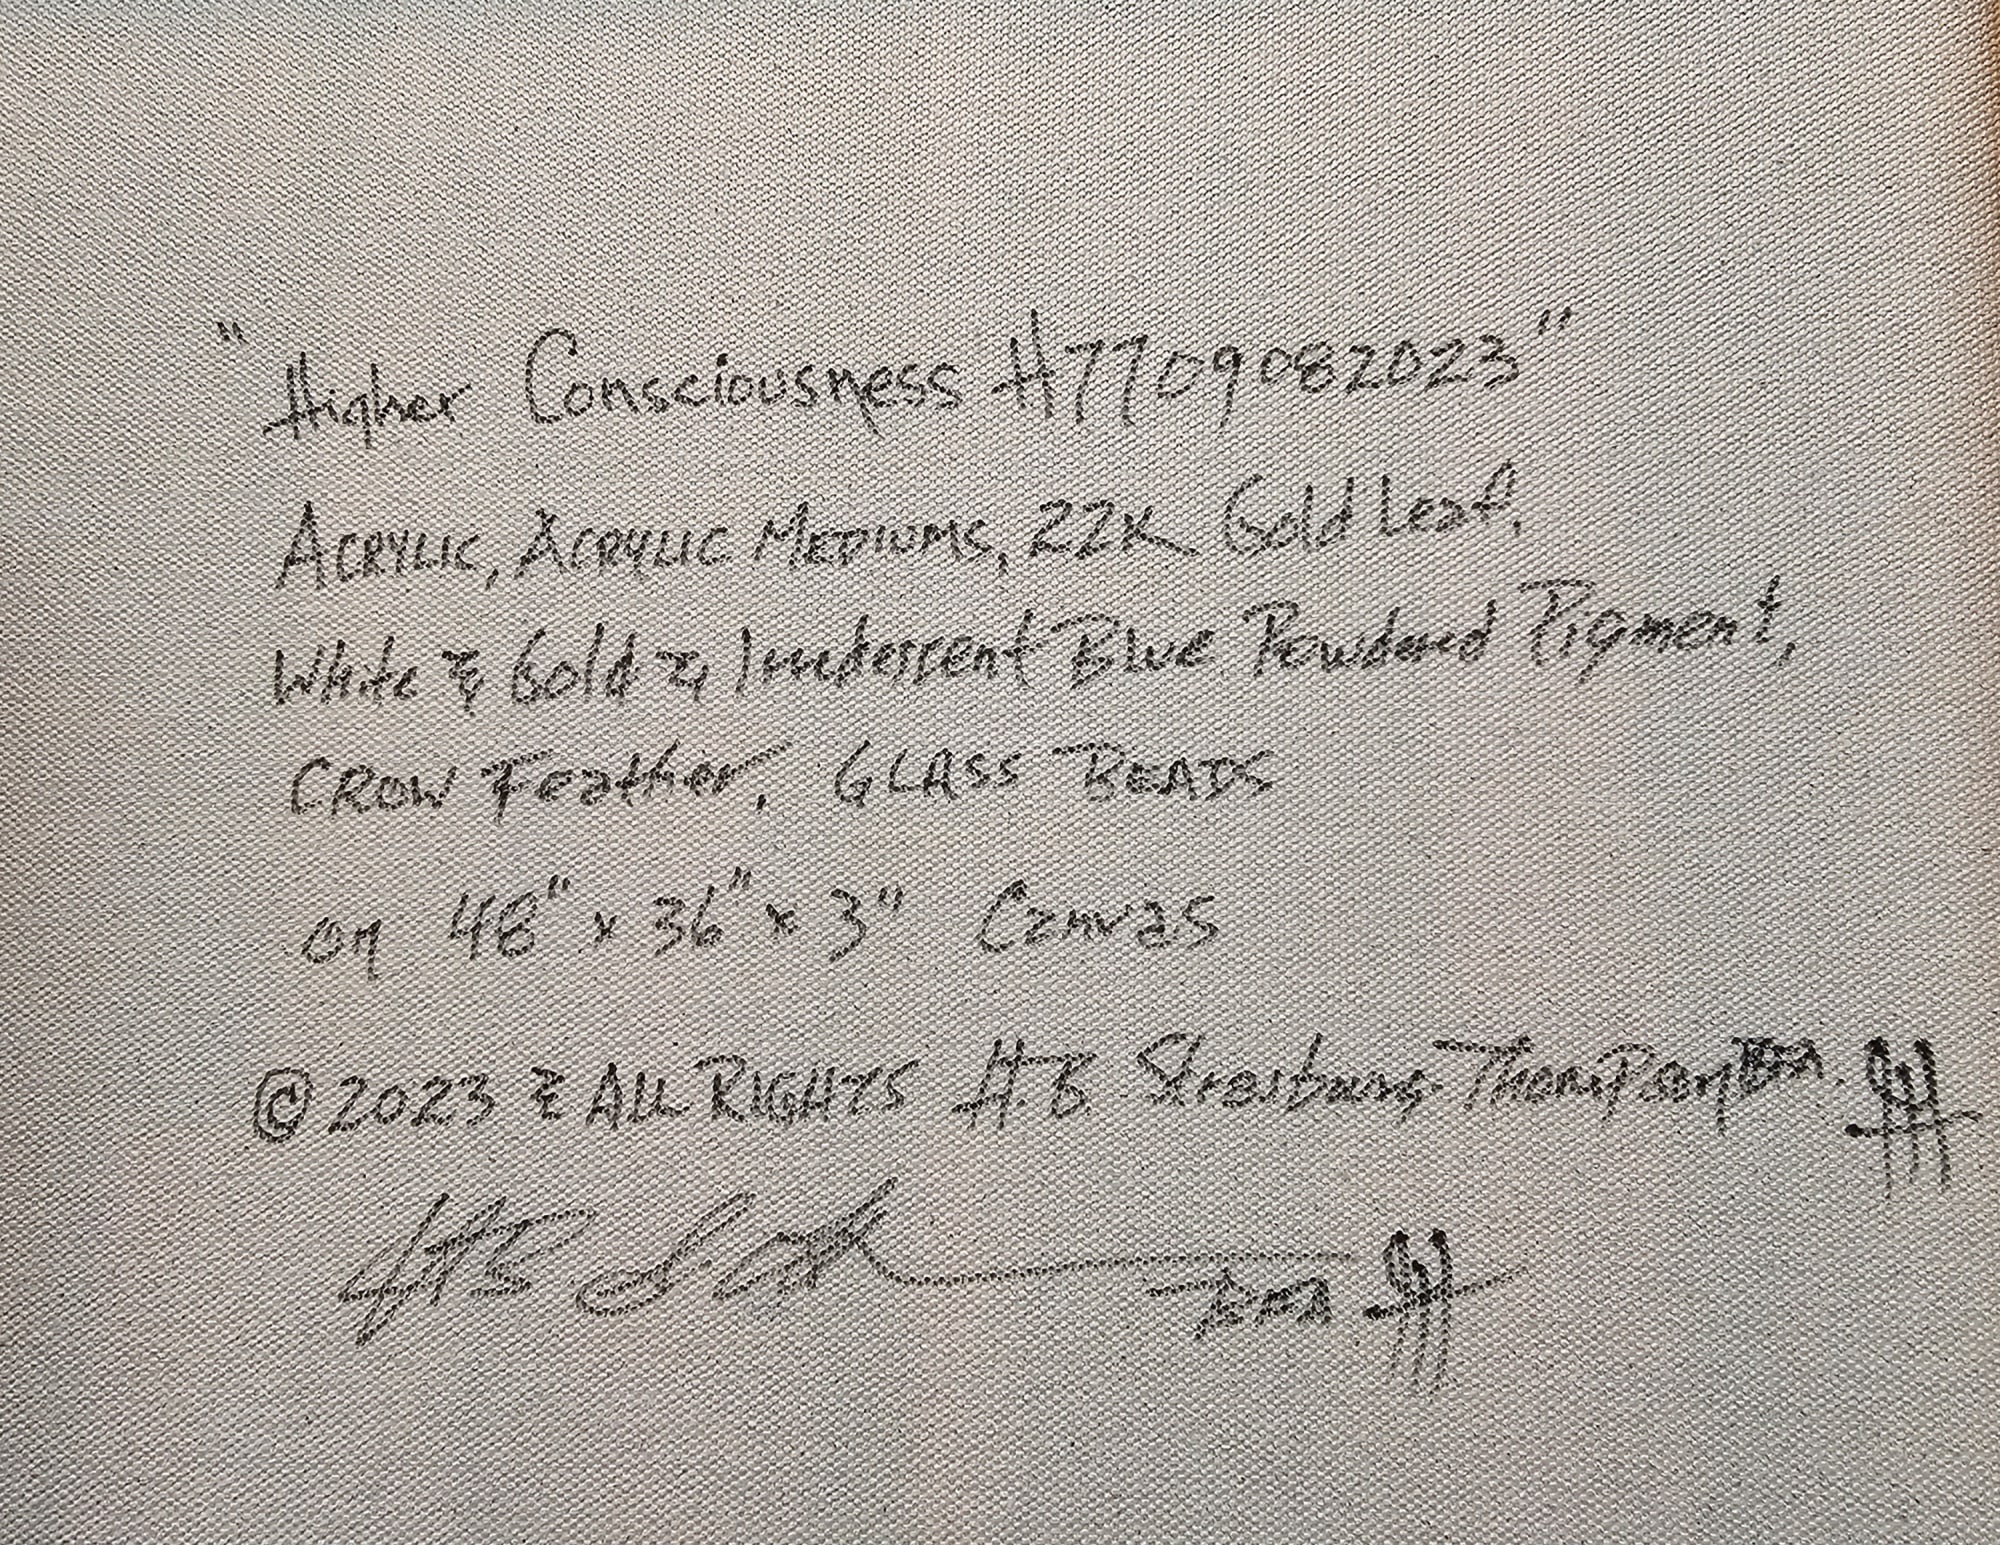 "Higher Consciousness H7709082023"
ACRYLIC, ACRYLIC MEDIUMS, 22K Gold Leaf,
White & Gold & Iridescent Blue Powdered Pigment,
CROW Feather, GLASS BEADS
on 48" x 36" x 3" Canvas
© 2023 & ALL RIGHTS H.B. Strasburg-Thompson, BFA.
BFA